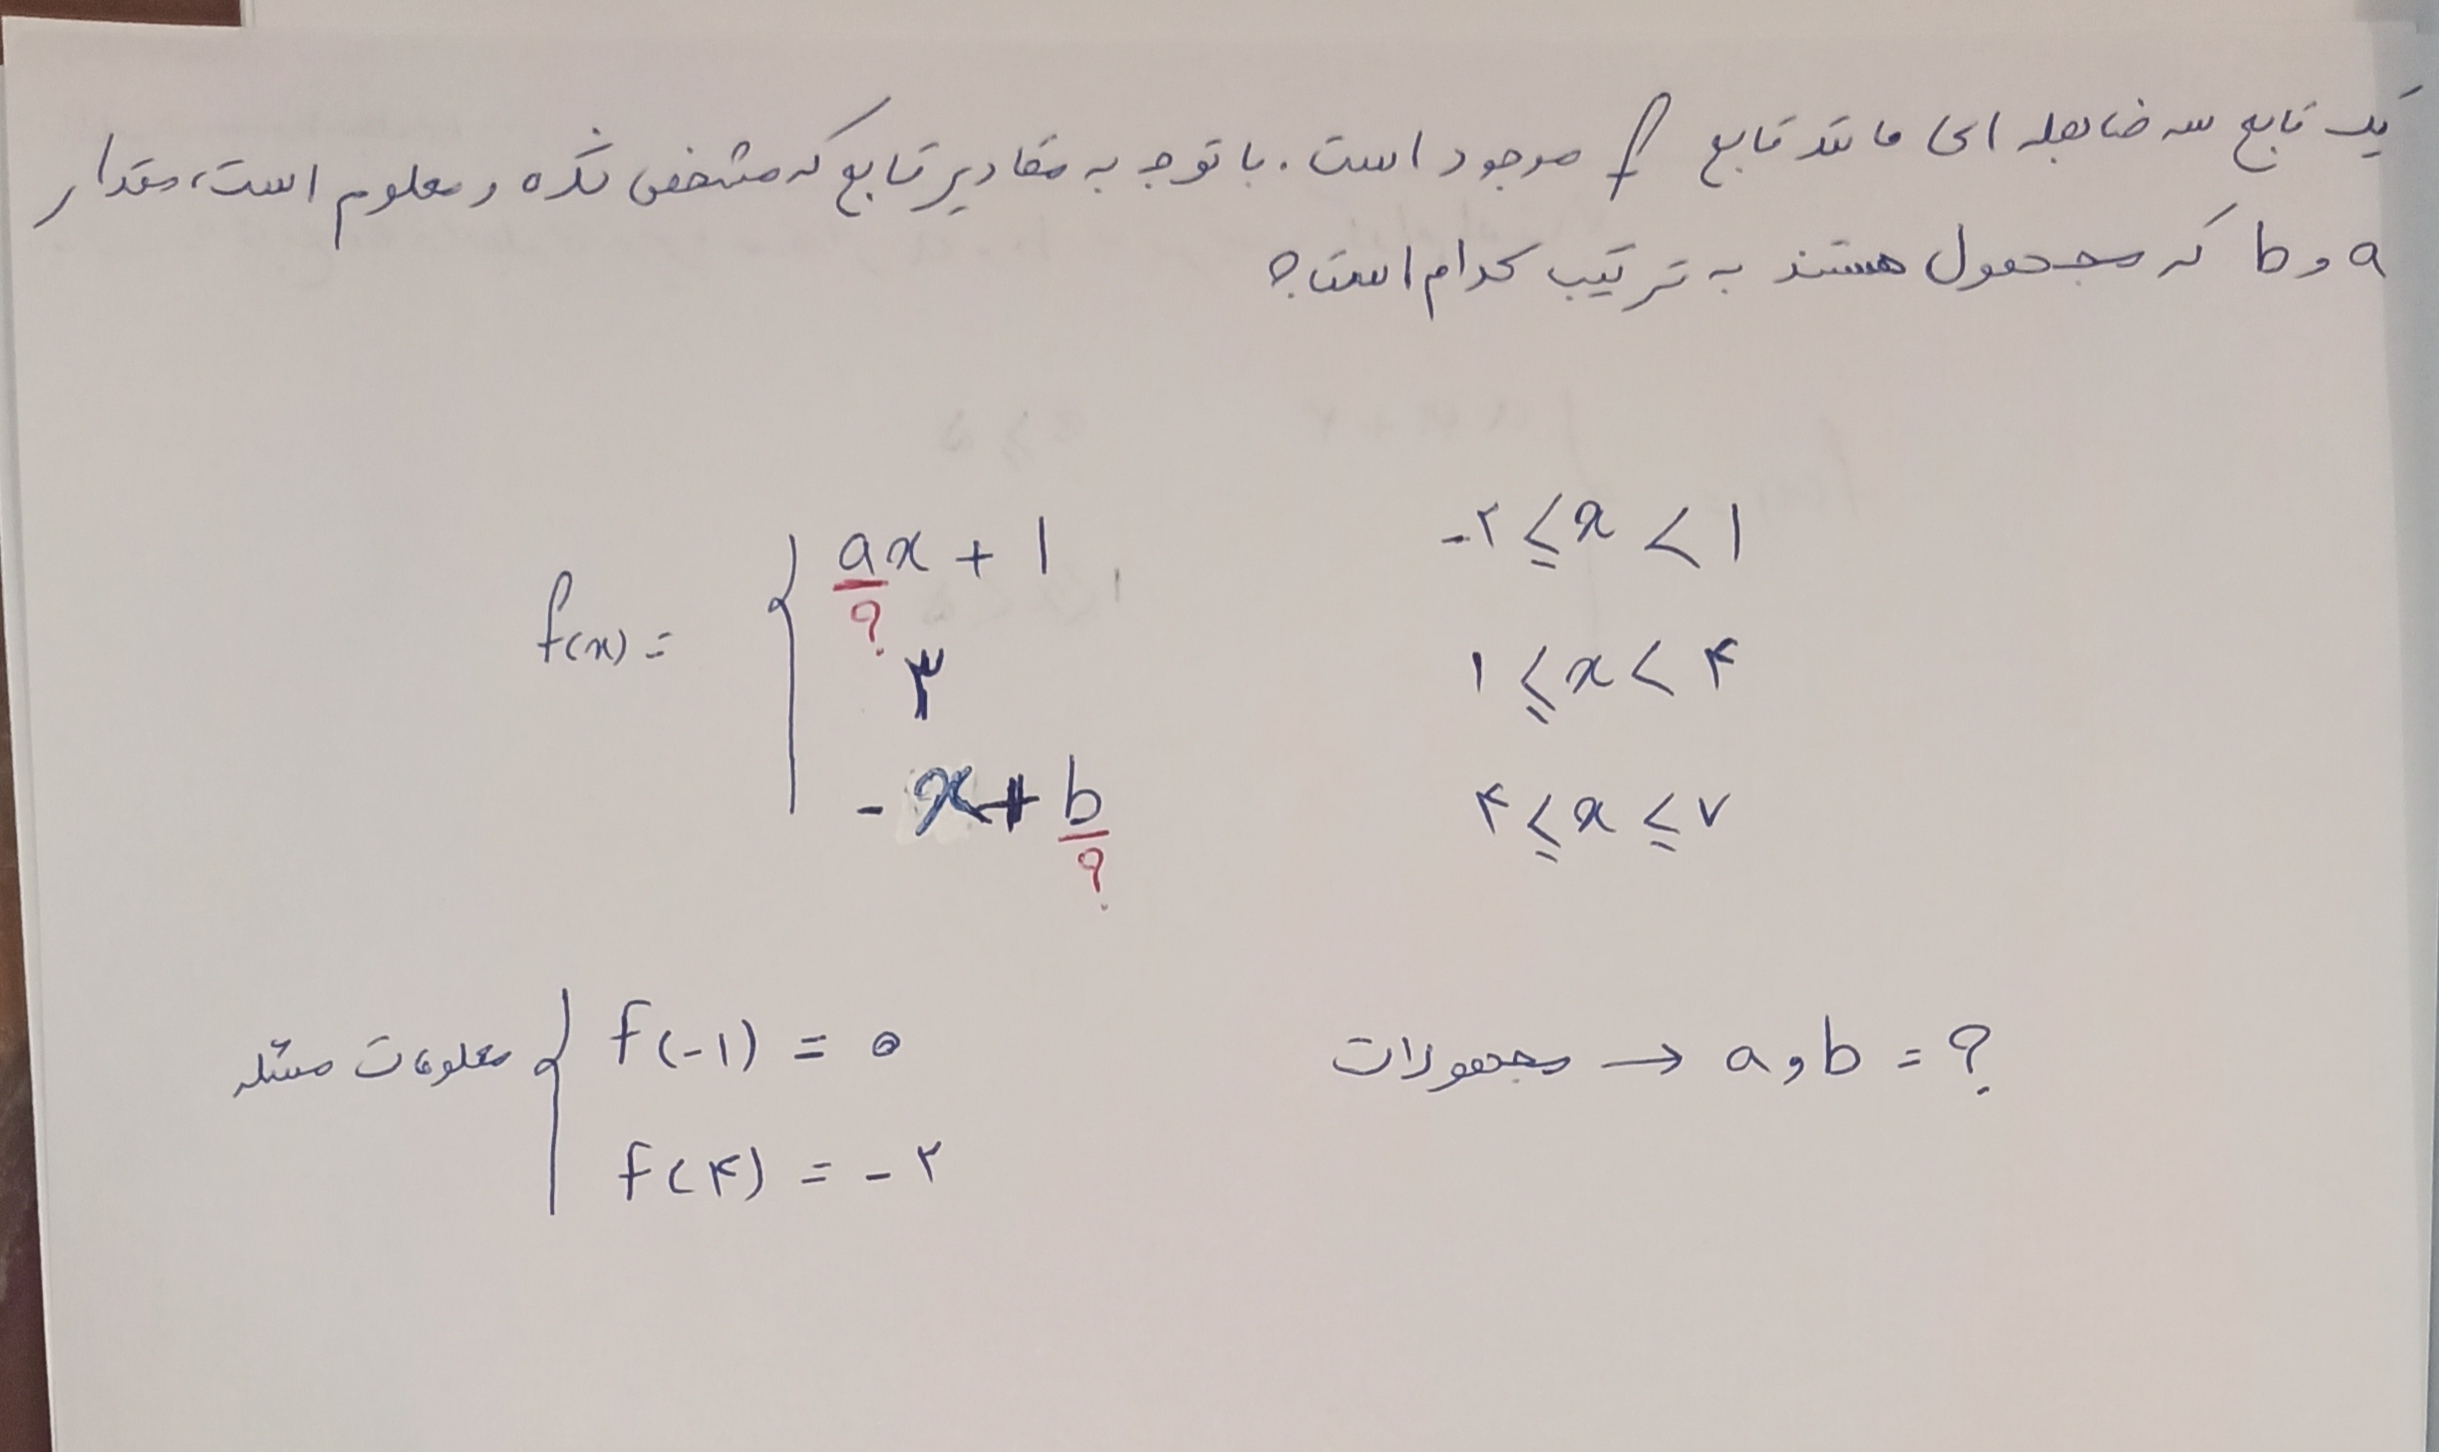 یک تابع سه ضابطه ای مانند تابع f موجود است. با توجه به مقادیر تابع که مشخص شده و معلوم است، مقدار
a و b که مجهول هستند به ترتیب کدام است؟
f(x) = {
ax + 1    -۲ ≤ x < 1
?
۳    ۱ ≤ x < ۴
-x + b    ۴ ≤ x ≤ ۷
?
معلومات مسئله { f(-1) = 0    مجهولات → a و b = ?
f(۴) = -۲